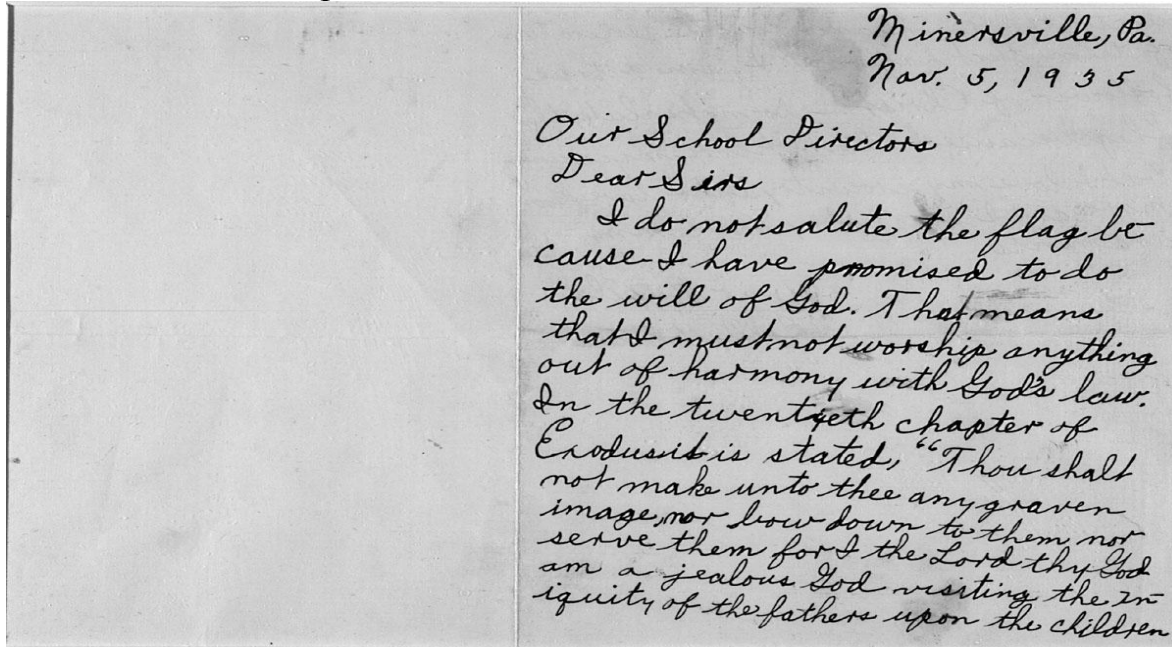 Minersville, Pa.
Nov. 5, 1935
Our School Directors
Dear Sirs
I do not salute the flag be
cause I have promised to do
the will of God. That means
that I must not worship anything
out of harmony with God's law.
In the twentyeth chapter of
Exodus it is stated, "Thou shalt
not make unto thee any graven
image, nor bow down to them nor
serve them for I the Lord thy God
am a jealous God visiting the in-
iquity of the fathers upon the children